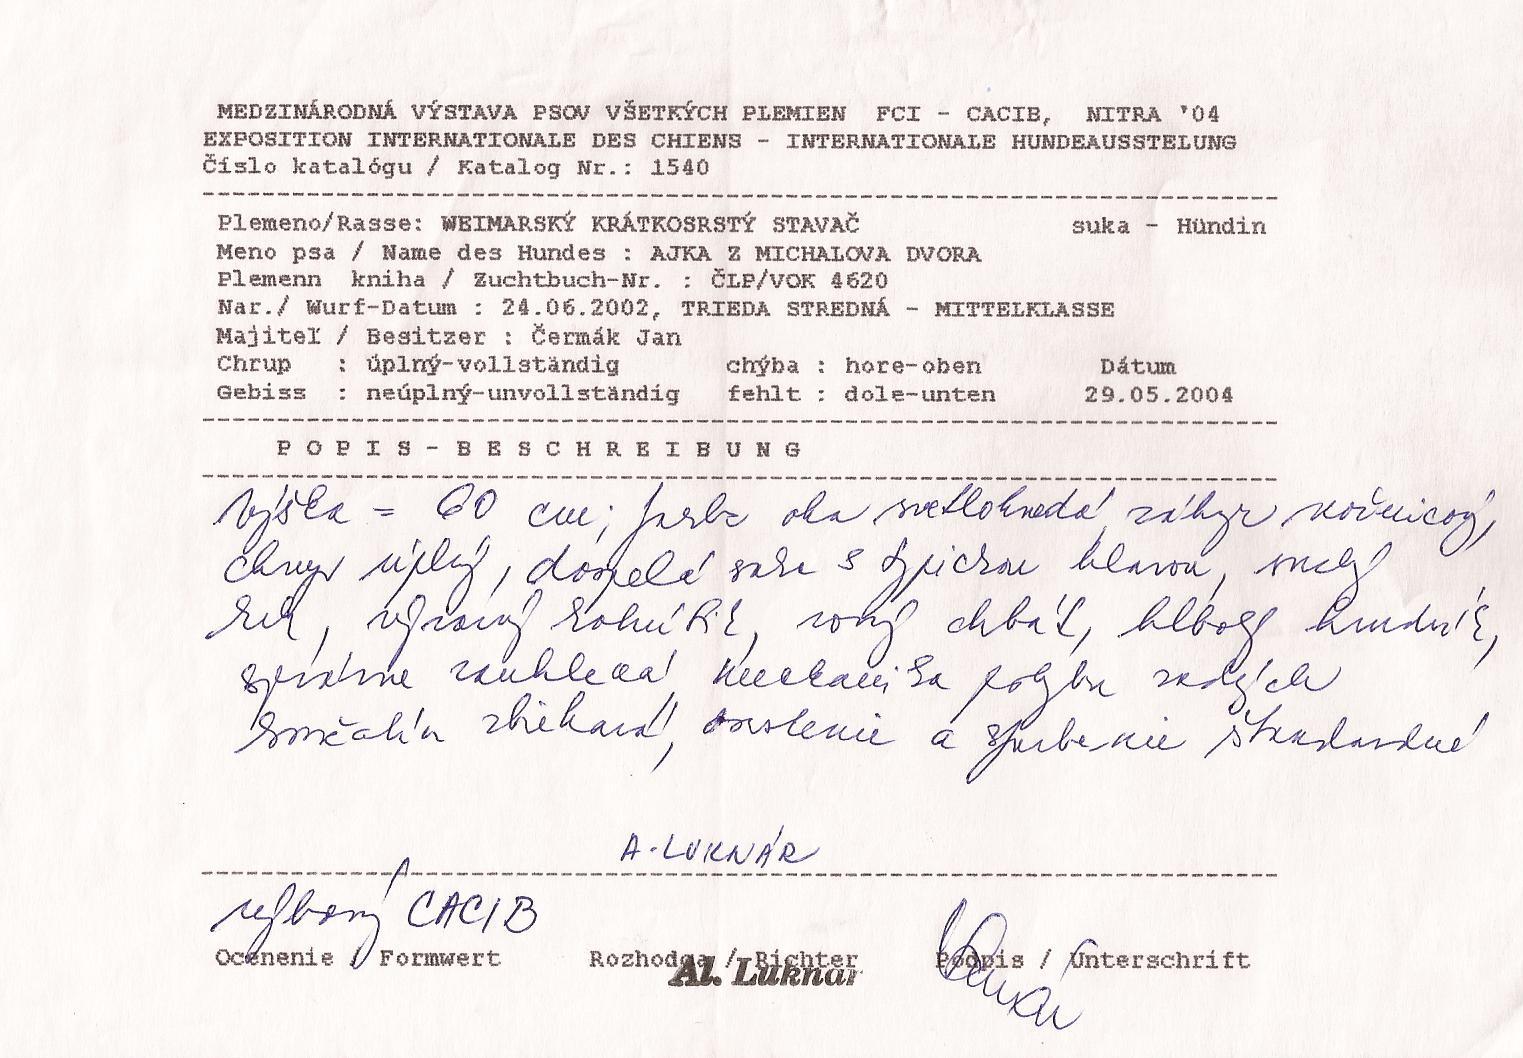 MEDZINÁRODNÁ VÝSTAVA PSOV VŠETKÝCH PLEMIEN FCI - CACIB, NITRA '04
EXPOSITION INTERNATIONALE DES CHIENS - INTERNATIONALE HUNDEAUSSTELUNG
Číslo katalógu / Katalog Nr.: 1540
Plemeno/Rasse: WEIMARSKÝ KRÁTKOSRSTÝ STAVAČ suka - Hündin
Meno psa / Name des Hundes : AJKA Z MICHALOVA DVORA
Plemenn kniha / Zuchtbuch-Nr. : ČLP/VOK 4620
Nar./ Wurf-Datum : 24.06.2002, TRIEDA STREDNÁ - MITTELKLASSE
Majiteľ / Besitzer : Čermák Jan
Chrup : úplný-vollständig chýba : hore-oben Dátum
Gebiss : neúplný-unvollständig fehlt : dole-unten 29.05.2004
POPIS-BESCHREIBUNG
Výška = 60 cm; farba oka svetlohnedá, záhryz nožnicový,
chrup úplný, dospelá suka s typickou hlavou, suchý
krk, výrazný kohútik, rovný chbát, hlboký hrudník,
správne zauhlená, mechanika pohybu zadných
končatín zbiehavá, osvalenie a sfarbenie štandardné
A. LUKNÁR
výborný CACIB
Ocenenie / Formwert Rozhodca / Richter Podpis / Unterschrift
Al. Luknár